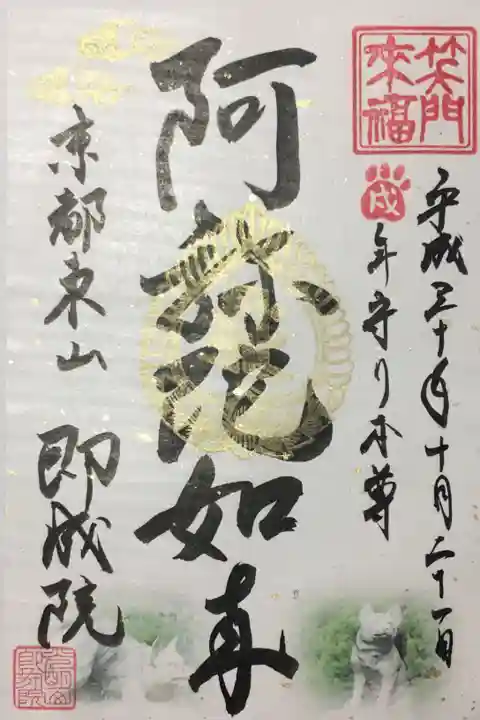 笑門
来福
平成三十年十月二十一日
戌
年守り本尊
阿弥陀如来
京都東山 即成院